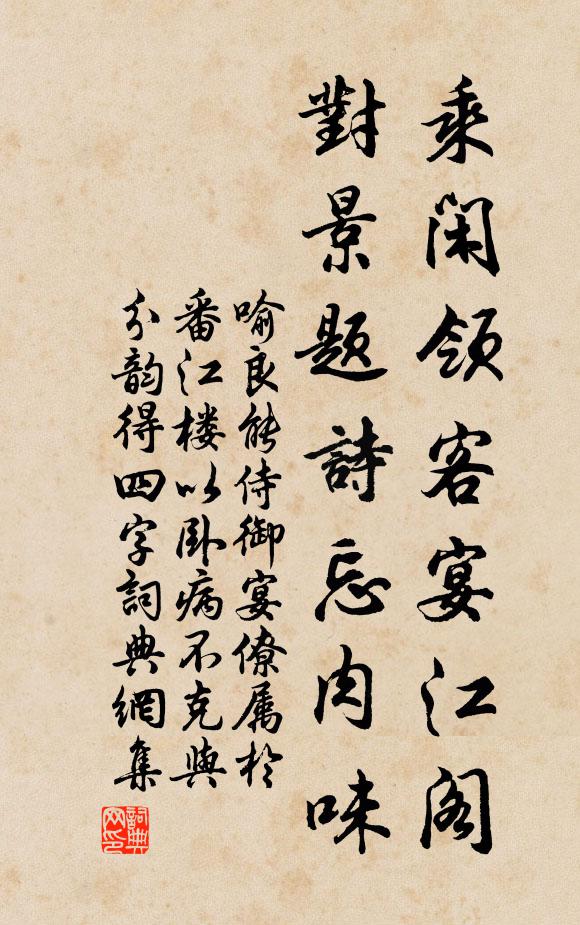 乘閑領客宴江閣
對景題詩忘肉味
喻良能侍御宴僚属於
番江楼以卧病不克與
分韵得四字詞典網集
詞典网印